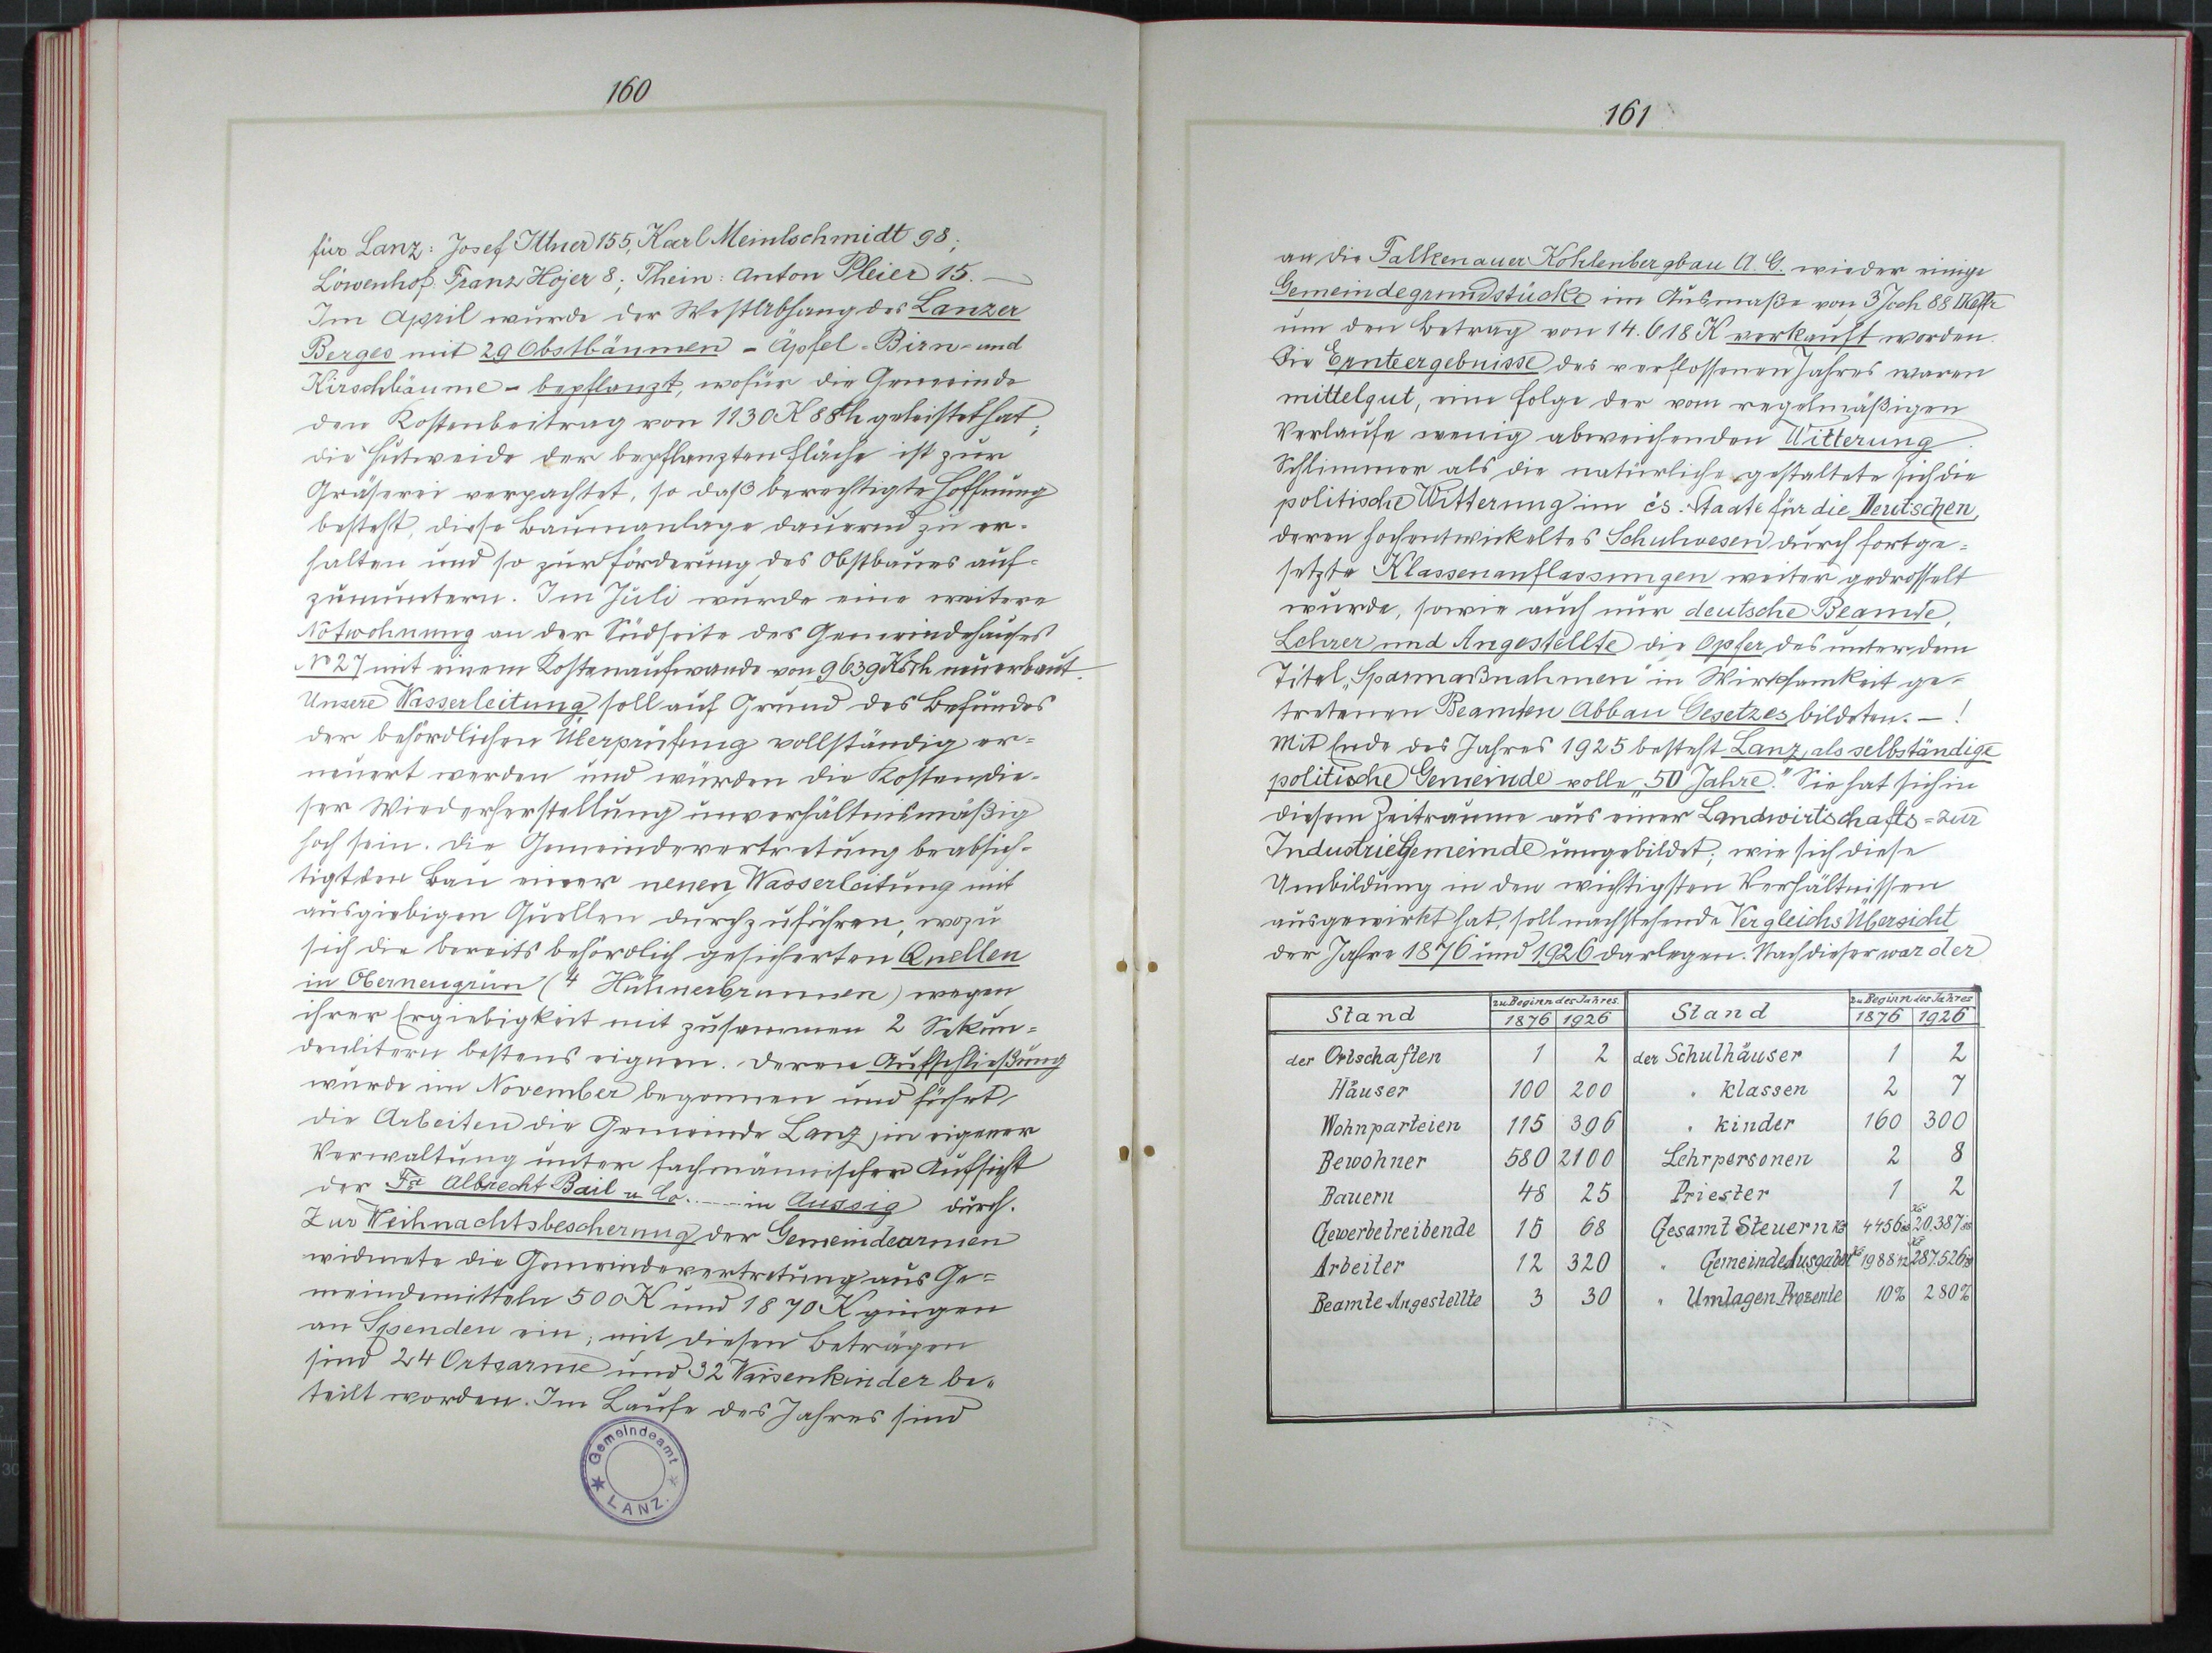 160
für Lanz: Josef Ittner 155, Karl Meinlschmidt 98;
Löwenhof: Franz Hojer 8; Thein: Anton Pleier 15. —
Im April wurde der Westabhang des Lanzer
Berges mit 29 Obstbäumen - Äpfel- Birn- und
Kirschbäume - bepflanzt, wofür die Gemeinde
den Kostenbeitrag von 1130 K 88 h geleistet hat;
die Hutweide der bepflanzten Fläche ist zur
Gräserei verpachtet, so daß berechtigte Hoffnung
besteht, diese Baumanlage dauernd zu er-
halten und so zur Förderung des Obstbaues auf-
zumuntern. Im Juli wurde eine weitere
Notwohnung an der Südseite des Gemeindehauses
No 27 mit einem Kostenaufwande von 9639 neuerbaut.
Unsere Wasserleitung soll auf Grund des Befundes
der behördlichen Überprüfung vollständig er-
neuert werden und würden die Kosten die-
ser Wiederherstellung unverhältnismäßig
hoch sein. Die Gemeindevertretung beabsich-
tigt den Bau einer neuen Wasserleitung mit
ausgiebigen Quellen durchzuführen, wozu
sich die bereits behördlich gesicherten Quellen
in Oberneugrün (4 Hühnerbrunnen) wegen
ihrer Ergiebigkeit mit zusammen 2 Sekun-
denlitern bestens eignen. Deren Aufschließung
wurde im November begonnen und führt
die Arbeiten die Gemeinde Lanz in eigener
Verwaltung unter fachmännischer Aufsicht
der Fa Albrecht Bail u Co. in Aussig durch.
Zur Weihnachtsbescherung der Gemeindearmen
widmete die Gemeindevertretung aus Ge-
meindemitteln 500 K und 1870 K gingen
an Spenden ein; mit diesen Beträgen
sind 24 Ortsarme und 32 Waisenkinder be-
teilt worden. Im Laufe des Jahres sind
Gemeindeamt
LANZ.
161
an die Falkenauer Kohlenbergbau A. G. wieder einige
Gemeindegrundstücke im Ausmaße von 3 Joch 88
um den Betrag von 14.618 K verkauft worden.
Die Ernteergebnisse des verflossenen Jahres waren
mittelgut, eine Folge der vom regelmäßigen
Verlaufe wenig abweichenden Witterung.
Schlimmer als die natürliche gestaltete sich die
politische Witterung im čs. Staate für die Deutschen,
deren hochentwickeltes Schulwesen durch fortge-
setzte Klassenauflassungen weiter gedrosselt
wurde, sowie auch nur deutsche Beamte,
Lehrer und Angestellte die Opfer des unter dem
Titel „Sparmaßnahmen" in Wirksamkeit ge-
tretenen Beamten Abbau Gesetzes bildeten. — !
Mit Ende des Jahres 1925 besteht Lanz, als selbständige
politische Gemeinde volle „50 Jahre." Sie hat sich in
diesem Zeitraume aus einer Landwirtschafts = zur
Industrie Gemeinde umgebildet; wie sich diese
Umbildung in den wichtigsten Verhältnissen
ausgewirkt hat, soll nachstehende Vergleichs Übersicht
der Jahre 1876 und 1926 darlegen. Nach dieser war der
Stand zu Beginn des Jahres Stand zu Beginn des Jahres
1876 1926 1876 1926
der Ortschaften 1 2 der Schulhäuser 1 2
Häuser 100 200 " klassen 2 7
Wohnparteien 115 396 " kinder 160 300
Bewohner 580 2100 Lehrpersonen 2 8
Bauern 48 25 Priester 1 2
Gewerbetreibende 15 68 Gesamt Steuern Kč 4456 Kč 20.387
Arbeiter 12 320 " Gemeinde Ausgaben Kč 1988 Kč 287.526
Beamte Angestellte 3 30 " Umlagen Prozente 10% 280%